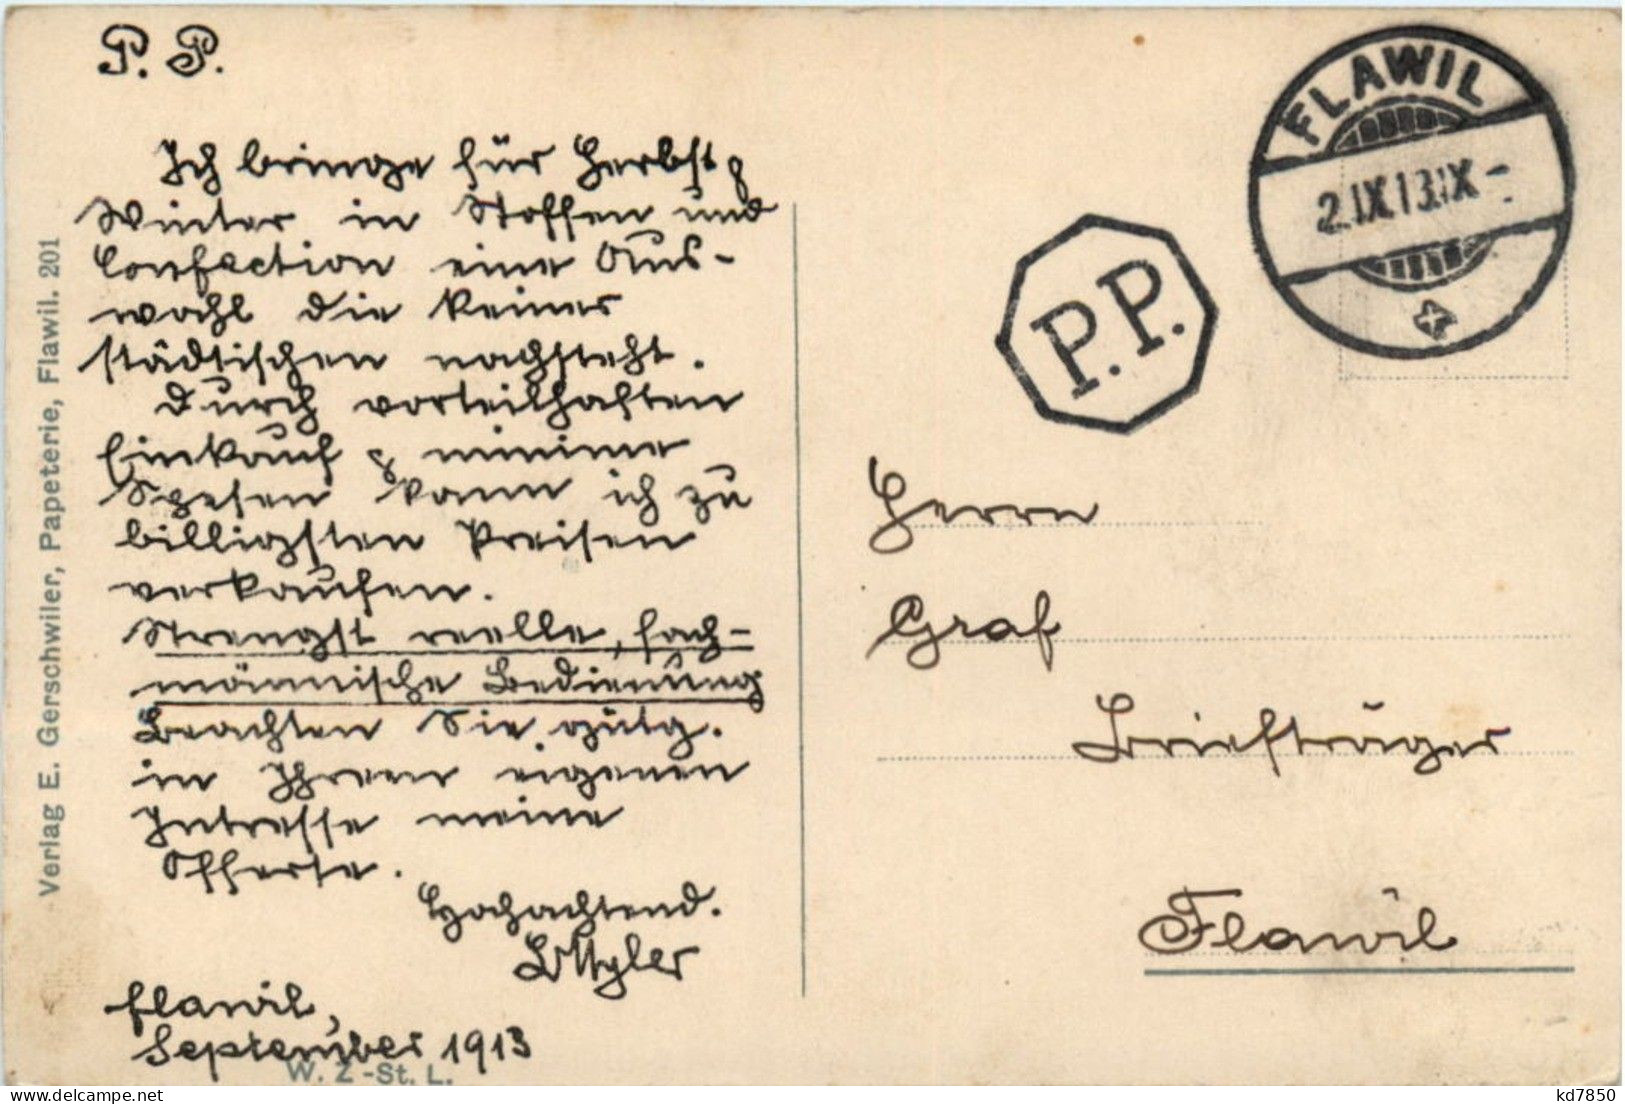 P. P.
Ich bringe für Herbst &
Winter in Stoffen und
Confection eine Aus-
wahl die keiner
städtischen nachsteht.
Durch vorteilhaften
Einkauf & minime
Spesen kann ich zu
billigsten Preisen
verkaufen.
Strengst reelle, fach-
männische Bedienung
Beachten Sie gütg.
in Ihrem eigenen
Intresse meine
Offerte.
Hochachtend.
Flawil,
September 1913
W. Z.-St. L.
Verlag E. Gerschwiler, Papeterie, Flawil. 201
FLAWIL
2.IX.13.IX-
P.P.
Herrn
Graf
Briefträger
Flawil
kd7850